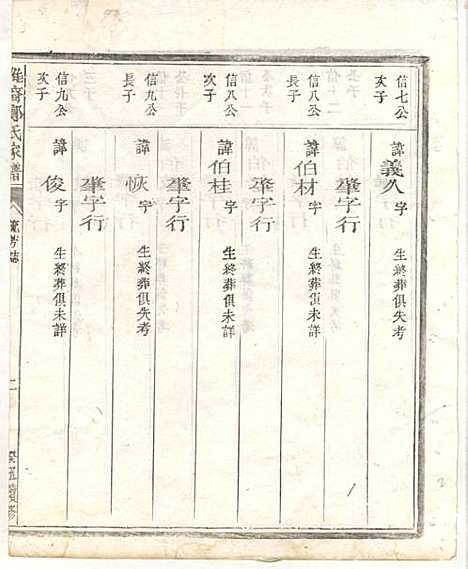 信七公
次子
諱義久字 生終葬俱失考
肇字行
信八公
長子
諱伯材字 生終葬俱未詳
肇字行
信八公
次子
諱伯桂字 生終葬俱未詳
肇字行
信九公
長子
諱恢字 生終葬俱失考
肇字行
信九公
次子
諱俊字 生終葬俱未詳
氏家譜 二 續修